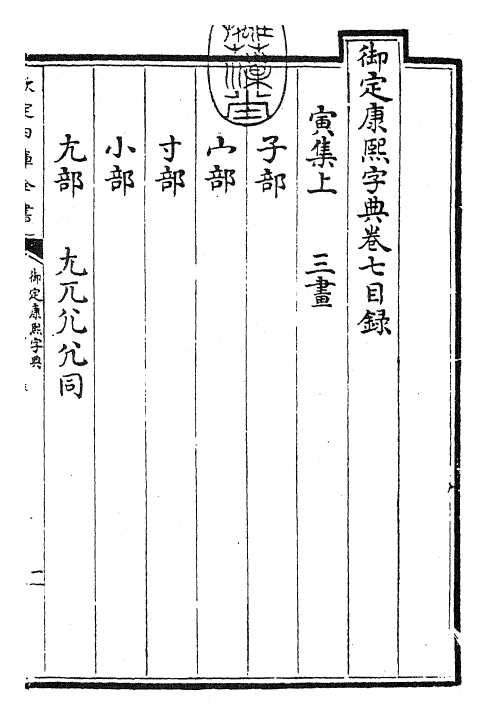 御定康熙字典卷七目録
寅集上 三畫
子部
宀部
寸部
小部
尢部 尢兀尣允同
欽定四庫全書
御定康熙字典